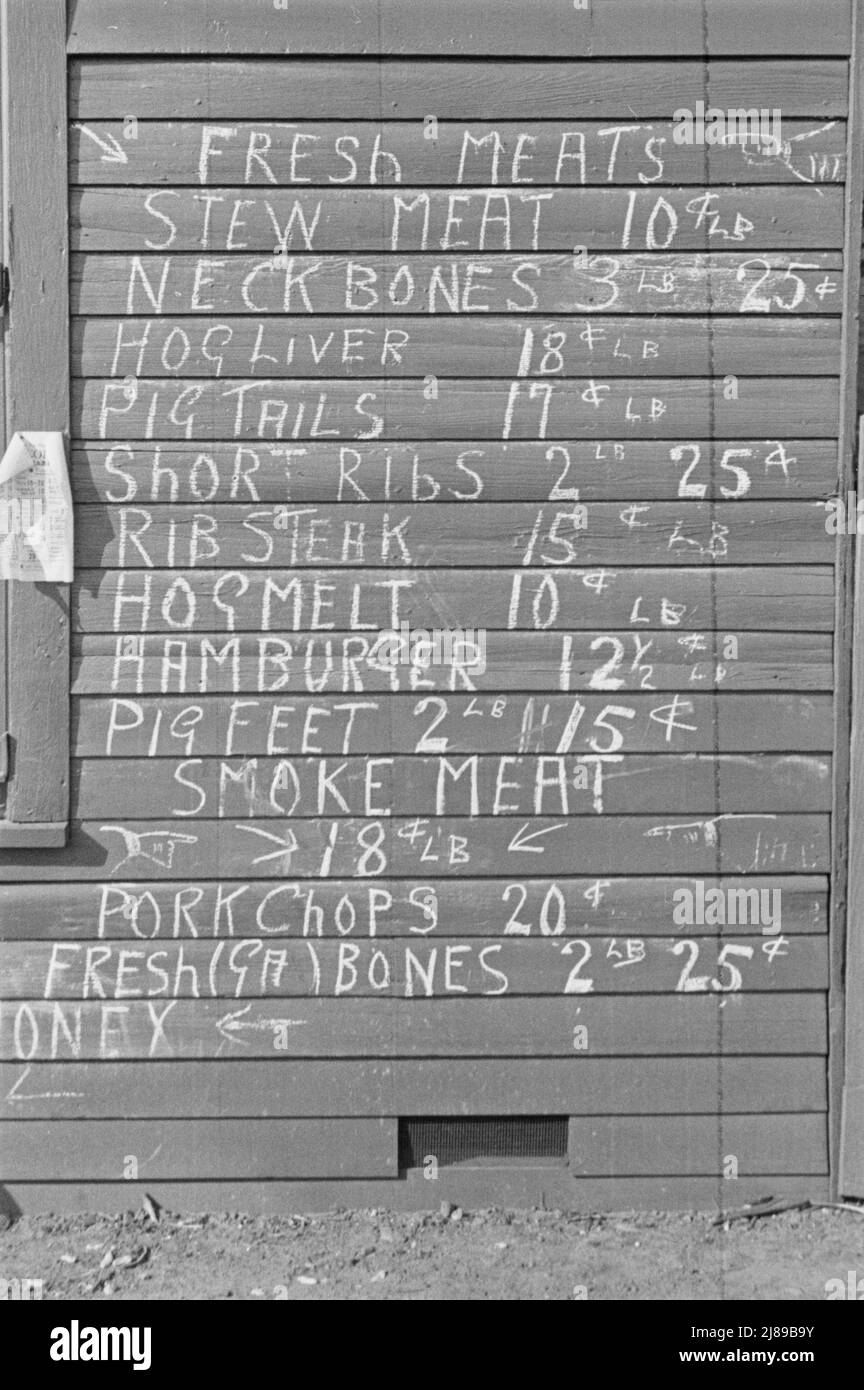 FRESh MEATS
STEW MEAT 10¢ LB
NECK BONES 3 LB 25¢
HOG LIVER 18¢ LB
PIG TAILS 17¢ LB
ShORT RIbS 2 LB 25¢
RIB STEAK 15¢ LB
HOG MELT 10¢ LB
HAMBURGER 12 1/2¢ LB
PIG FEET 2 LB 15¢
SMOKE MEAT
18¢ LB
PORK ChOPS 20¢
FRESh (GA) BONES 2 LB 25¢
ONEY
alamy
Image ID: 2J89B9Y
www.alamy.com